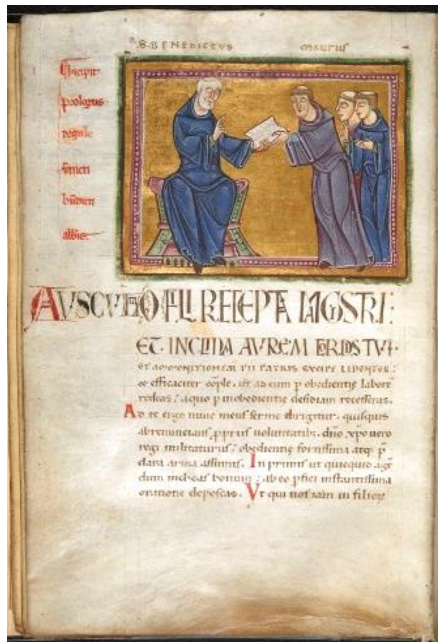 S. BENEDICTUS MAURUS
Incipit
prologus
regule
sancti
AUSCULTA O FILI PRECEPTA MAGISTRI:
ET INCLINA AUREM CORDIS TUI.
et ammonitionem pii patris excipe libenter:
et efficaciter comple. ut ad eum p obedientie labore
redeas: a quo p inobedientie desidiam recesseras.
Ad te ergo nunc meus sermo dirigitur. quisquis
abrenuncians propriis voluntatibus. dno xpo vero
regi militaturus: obedientie fortissima atq; p
clara arma assumis. In primis ut quicquid agen
dum inchoas bonum: ab eo pfici instantissima
oratione deposcas. Ut qui nos iam in filiorum